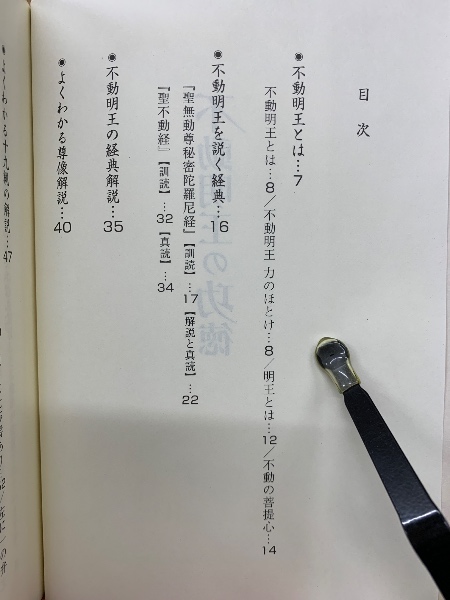 目次
◉不動明王とは…7
不動明王とは…8／不動明王 力のほとけ…8／明王とは…12／不動の菩提心…14
◉不動明王を説く経典…16
『聖無動尊秘密陀羅尼経』【訓読】…17【解説と真読】…22
『聖不動経』【訓読】…32【真読】…34
◉不動明王の経典解説…35
◉よくわかる尊像解説…40
◉よくわかる十九観の解説…47